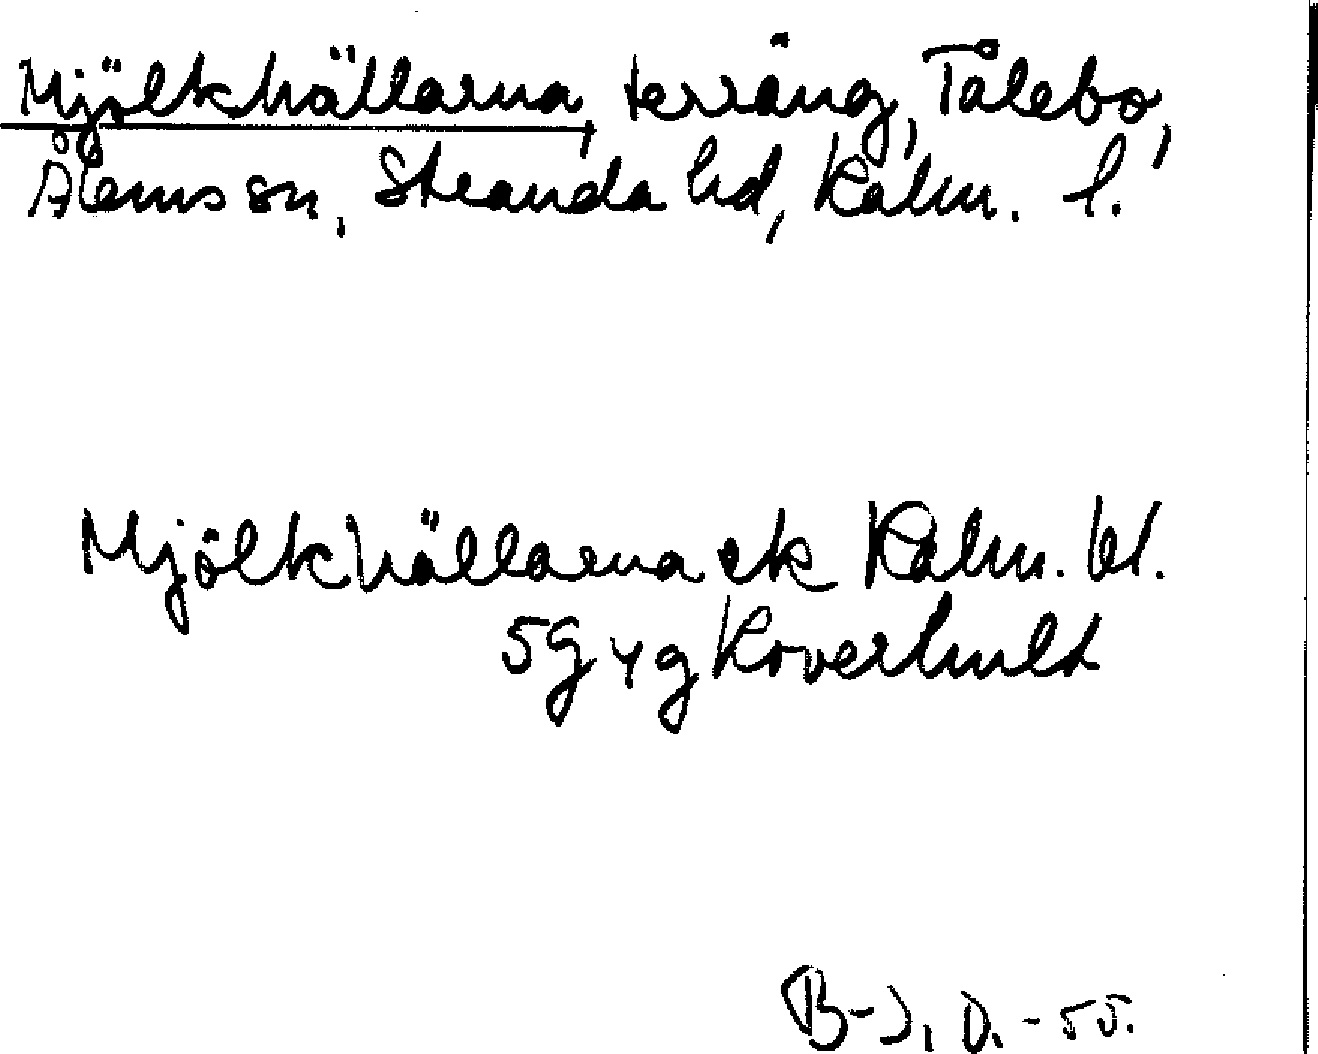 Mjölkhällarna, terräng, Tålebo,
Ålems sn, Stranda hd, Kalm. l.
Mjölkhällarna ek Kalm. bl.
5g yg Koverhult
B-J. D. -55.